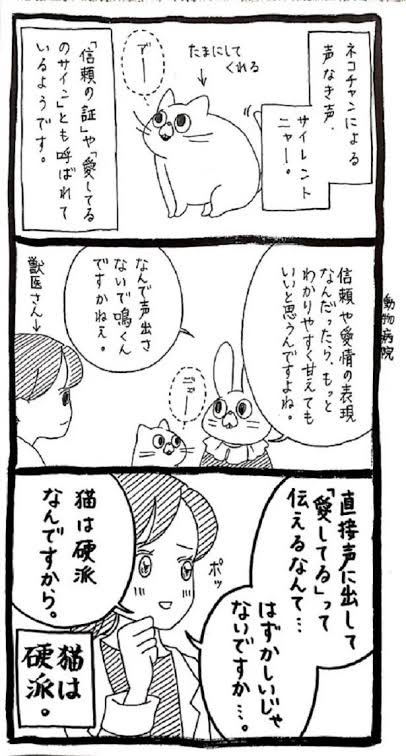 ネコチャンによる
声なき声、
サイレント
ニャー。
たまにして
くれる
ニャー
「信頼の証」や「愛してる
のサイン」とも呼ばれて
いるようです。
動物病院
信頼や愛情の表現
なんだったら、もっと
わかりやすく甘えても
いいと思うんですよね。
なんで声出さ
ないで鳴くん
ですかねぇ。
ニャー
獣医さん
直接声に出して
「愛してる」って
伝えるなんて…
はずかしいじゃ
ないですか…。
ポッ
猫は硬派
なんですから。
猫は
硬派。